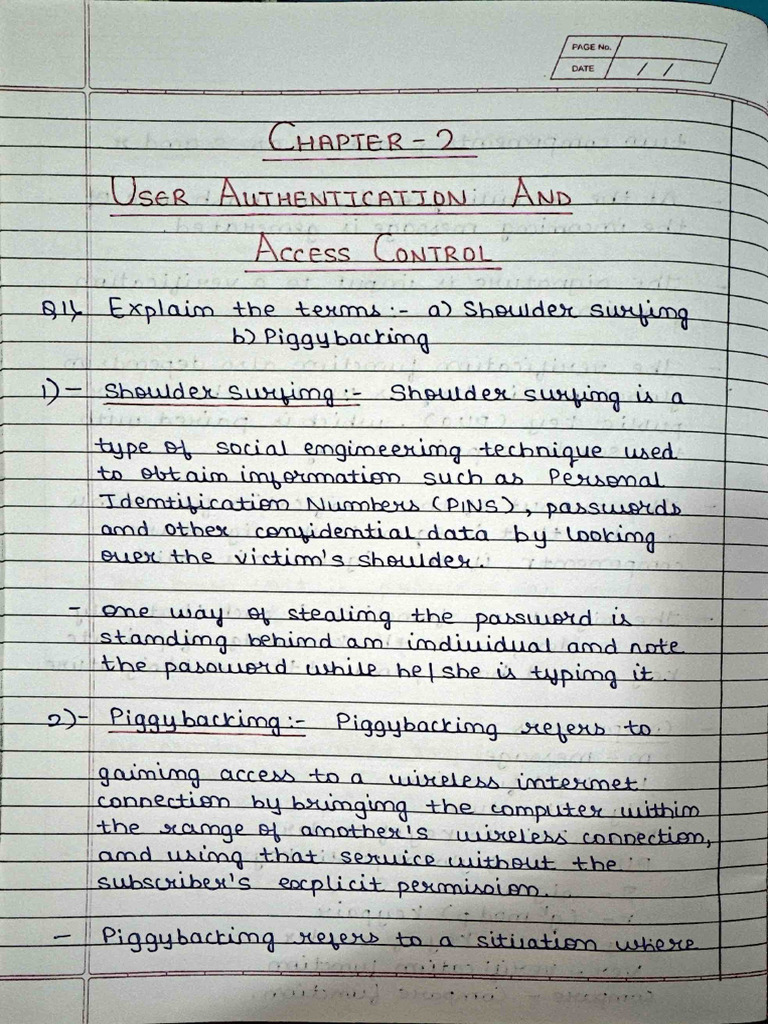 PAGE No.
DATE / /
CHAPTER - 2
USER AUTHENTICATION AND
ACCESS CONTROL
Q1). Explain the terms:- a) Shoulder surfing
b) Piggybacking
1) - Shoulder surfing :- Shoulder surfing is a
type of social engineering technique used
to obtain information such as Personal
Identification Numbers (PINS), passwords
and other confidential data by looking
over the victim's shoulder.
- one way of stealing the password is
standing behind an individual and note
the password while he/she is typing it
2) - Piggybacking :- Piggybacking refers to
gaining access to a wireless internet
connection by bringing the computer within
the range of another's wireless connection,
and using that service without the
subscriber's explicit permission.
- Piggybacking refers to a situation where